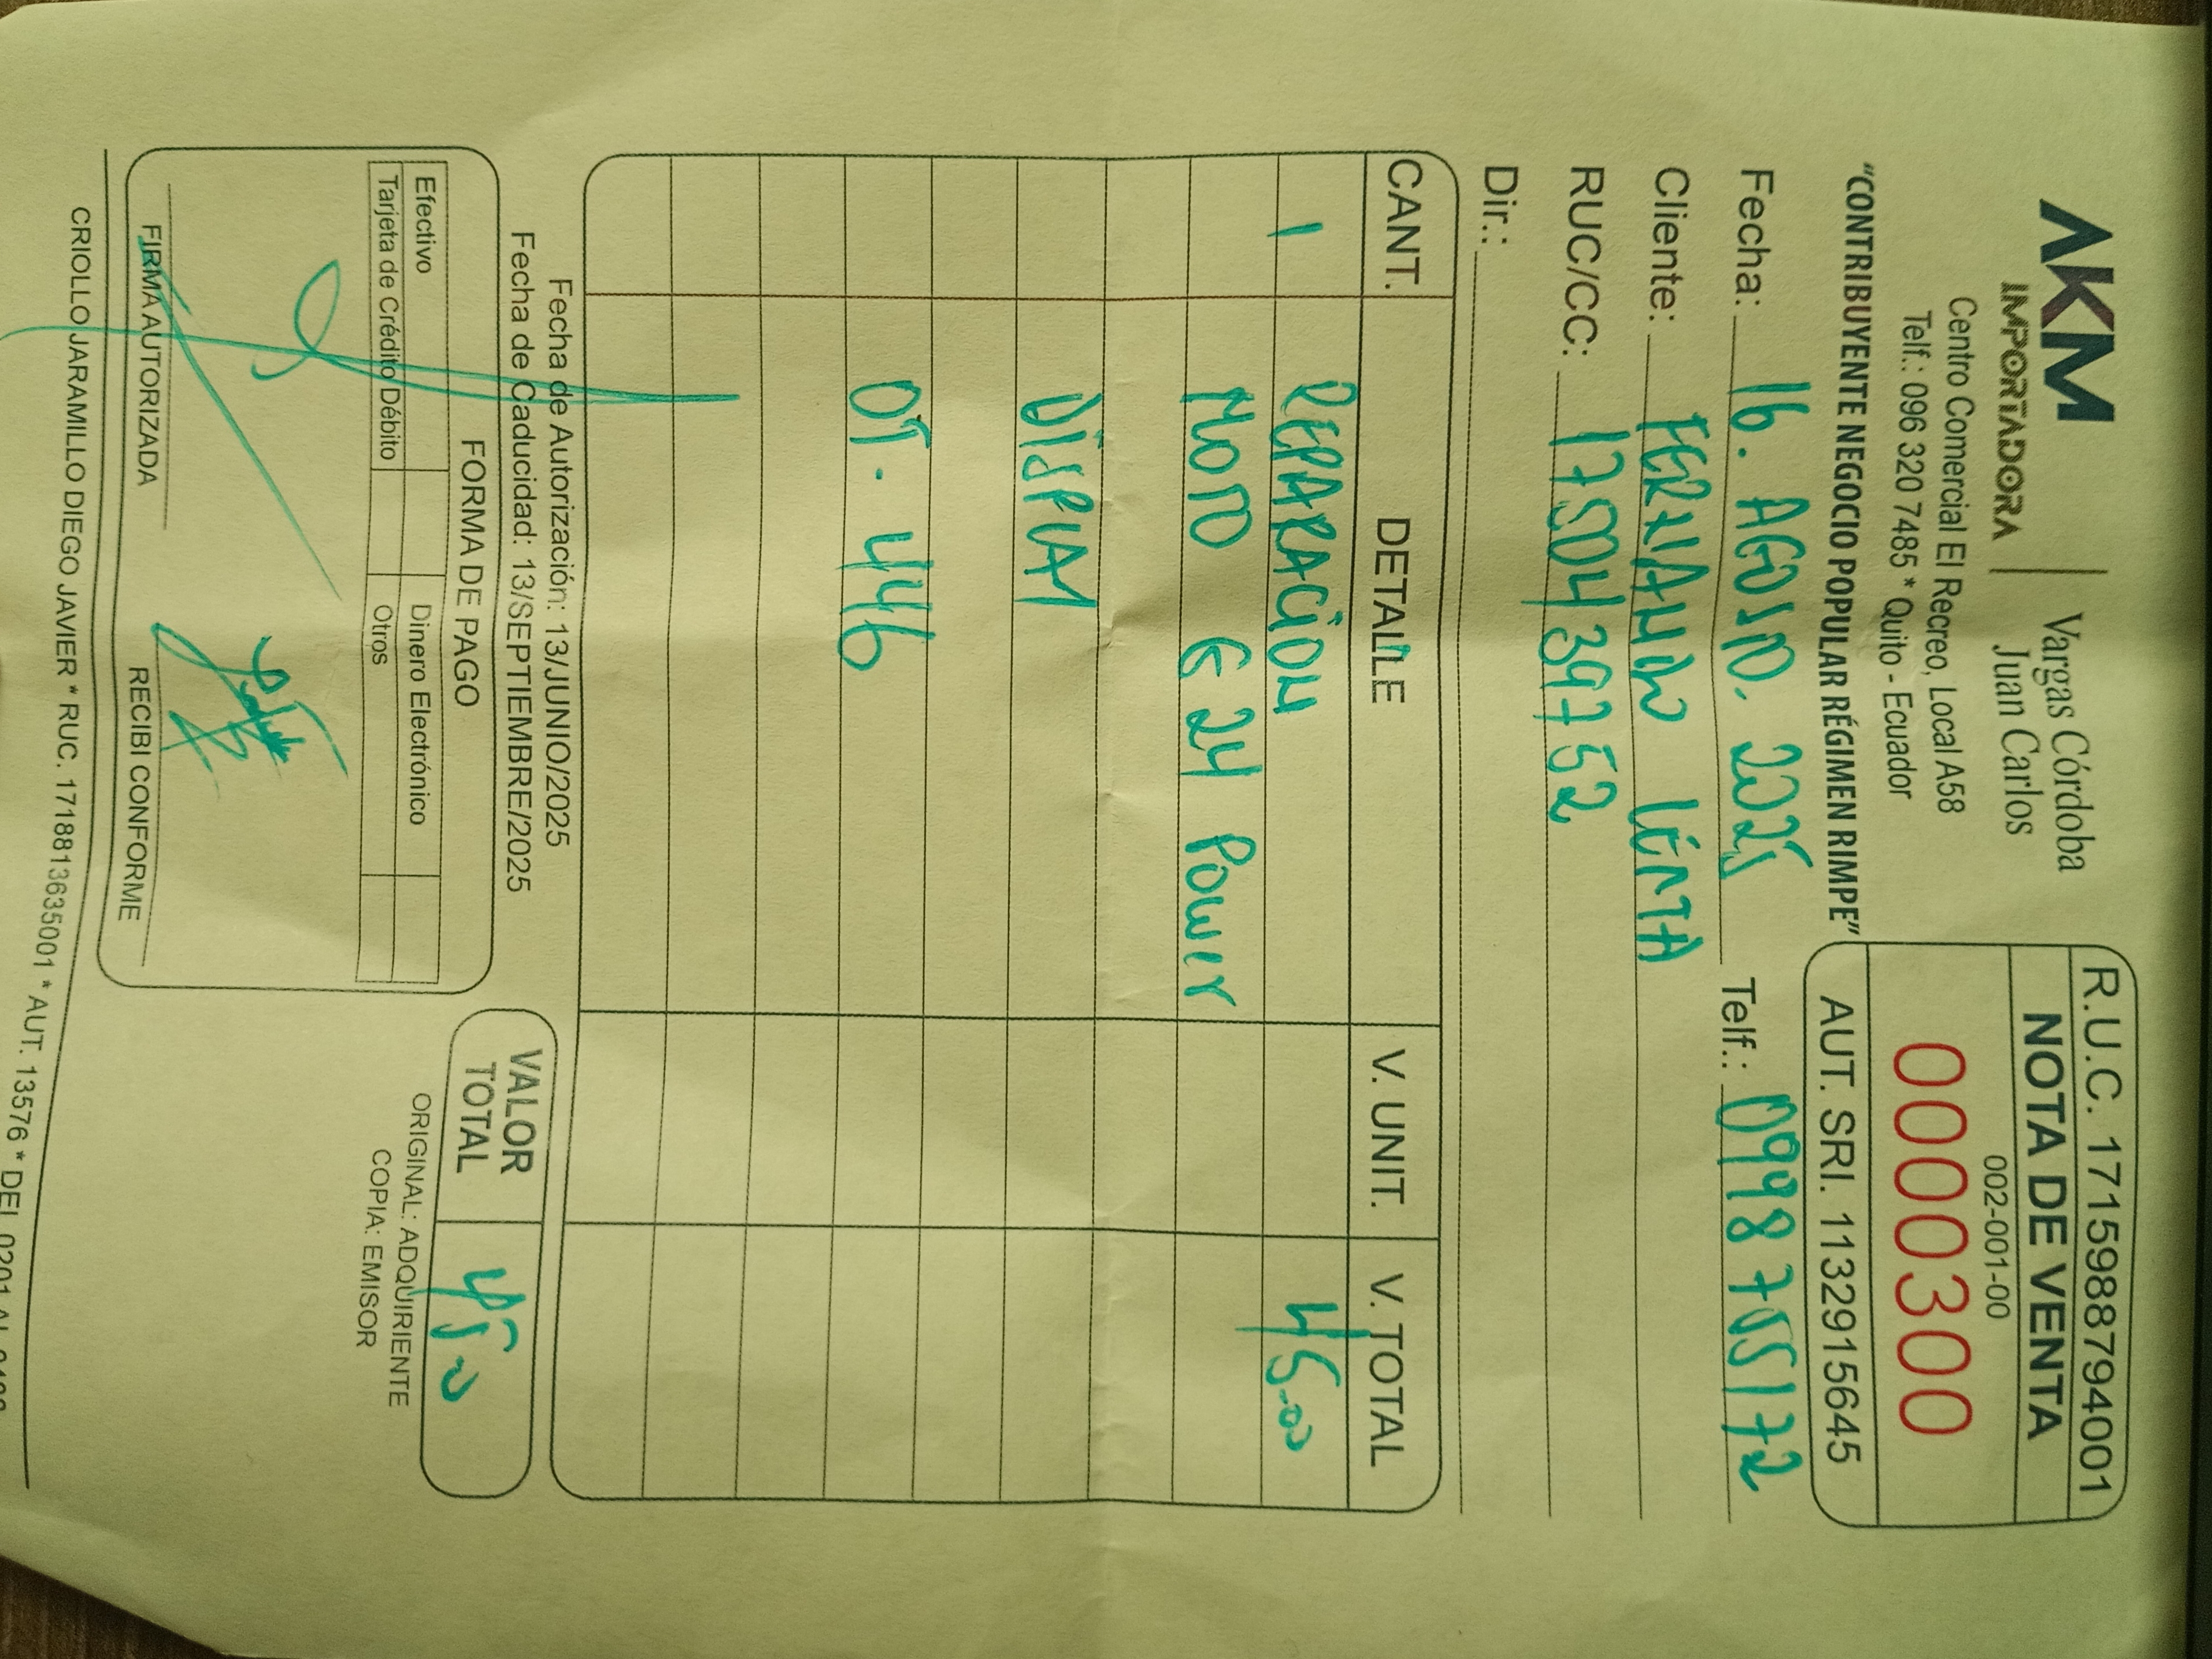 AKM
IMPORTADORA
Vargas Córdoba
Juan Carlos
Centro Comercial El Recreo, Local A58
Telf.: 096 320 7485 * Quito - Ecuador
"CONTRIBUYENTE NEGOCIO POPULAR RÉGIMEN RIMPE"
R.U.C. 1715988794001
NOTA DE VENTA
002-001-00
0000300
AUT. SRI. 1132915645
Fecha: 16. AGOSTO. 2025 Telf.: 0998755172
Cliente: FERNANDO
RUC/CC: 1750439752
Dir.:
CANT. DETALLE V. UNIT. V. TOTAL
1 REPARACIÓN 45.00
MOTO G 24 Power
DISPLAY
OT. 446
Fecha de Autorización: 13/JUNIO/2025
Fecha de Caducidad: 13/SEPTIEMBRE/2025
FORMA DE PAGO
Efectivo Dinero Electrónico
Tarjeta de Crédito Débito Otros
FIRMA AUTORIZADA RECIBI CONFORME
VALOR
TOTAL
45
ORIGINAL: ADQUIRIENTE
COPIA: EMISOR
CRIOLLO JARAMILLO DIEGO JAVIER * RUC. 1718813635001 * AUT. 13576 * DEL 0201 AL